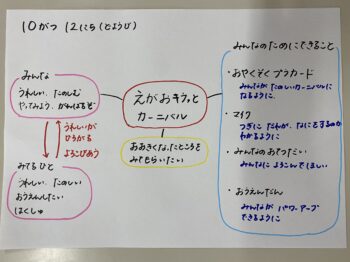 10がつ 12にち(どようび)
みんな
うれしい、たのしむ
やってみよう、がんばるぞ
うれしいが
ひろがる
よろこびあう
みるひと
うれしい、たのしい
おうえんしたい
はくしゅ
えがおキラッと
カーニバル
おおきくなったところを
みてもらいたい
みんなのためにできること
・おやくそくプラカード
みんながたのしいカーニバルに
なるように
・マイク
つぎにだれが、なにをするのか
わかるように
・みんなのおてつだい
みんなによろこんでほしい
・おうえんだん
みんながパワーアップ
できるように